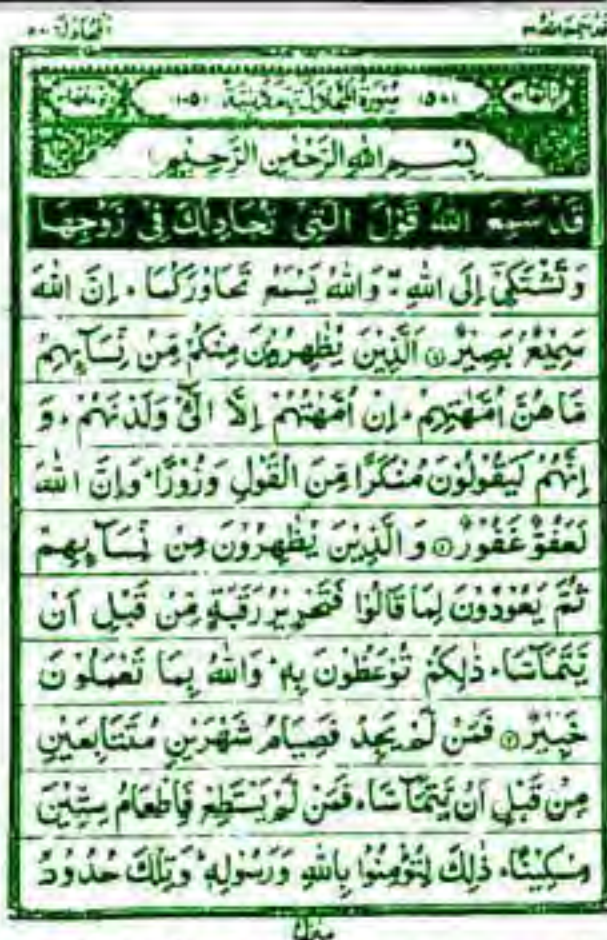 قد سمع الله ٢٨
المجادلة ٥٨
(٥٨) سُوْرَةُ الْمُجَادَلَةِ مَدَنِيَّةٌ (١٠٥)
بِسْمِ اللّٰهِ الرَّحْمٰنِ الرَّحِيْمِ
قَدْ سَمِعَ اللّٰهُ قَوْلَ الَّتِيْ تُجَادِلُكَ فِيْ زَوْجِهَا
وَتَشْتَكِيْٓ اِلَى اللّٰهِ ۖ وَاللّٰهُ يَسْمَعُ تَحَاوُرَكُمَا ۚ اِنَّ اللّٰهَ
سَمِيْعٌۢ بَصِيْرٌ ۝١ اَلَّذِيْنَ يُظٰهِرُوْنَ مِنْكُمْ مِّنْ نِّسَآئِهِمْ
مَّا هُنَّ اُمَّهٰتِهِمْ ۚ اِنْ اُمَّهٰتُهُمْ اِلَّا الّٰٓـِٔيْ وَلَدْنَهُمْ ۚ وَ
اِنَّهُمْ لَيَقُوْلُوْنَ مُنْكَرًا مِّنَ الْقَوْلِ وَزُوْرًا ۚ وَاِنَّ اللّٰهَ
لَعَفُوٌّ غَفُوْرٌ ۝٢ وَ الَّذِيْنَ يُظٰهِرُوْنَ مِنْ نِّسَآئِهِمْ
ثُمَّ يَعُوْدُوْنَ لِمَا قَالُوْا فَتَحْرِيْرُ رَقَبَةٍ مِّنْ قَبْلِ اَنْ
يَّتَمَآسَّا ۚ ذٰلِكُمْ تُوْعَظُوْنَ بِهٖ ۚ وَاللّٰهُ بِمَا تَعْمَلُوْنَ
خَبِيْرٌ ۝٣ فَمَنْ لَّمْ يَجِدْ فَصِيَامُ شَهْرَيْنِ مُتَتَابِعَيْنِ
مِنْ قَبْلِ اَنْ يَّتَمَآسَّا ۚ فَمَنْ لَّمْ يَسْتَطِعْ فَاِطْعَامُ سِتِّيْنَ
مِسْكِيْنًا ۚ ذٰلِكَ لِتُؤْمِنُوْا بِاللّٰهِ وَرَسُوْلِهٖ ۚ وَتِلْكَ حُدُوْدُ